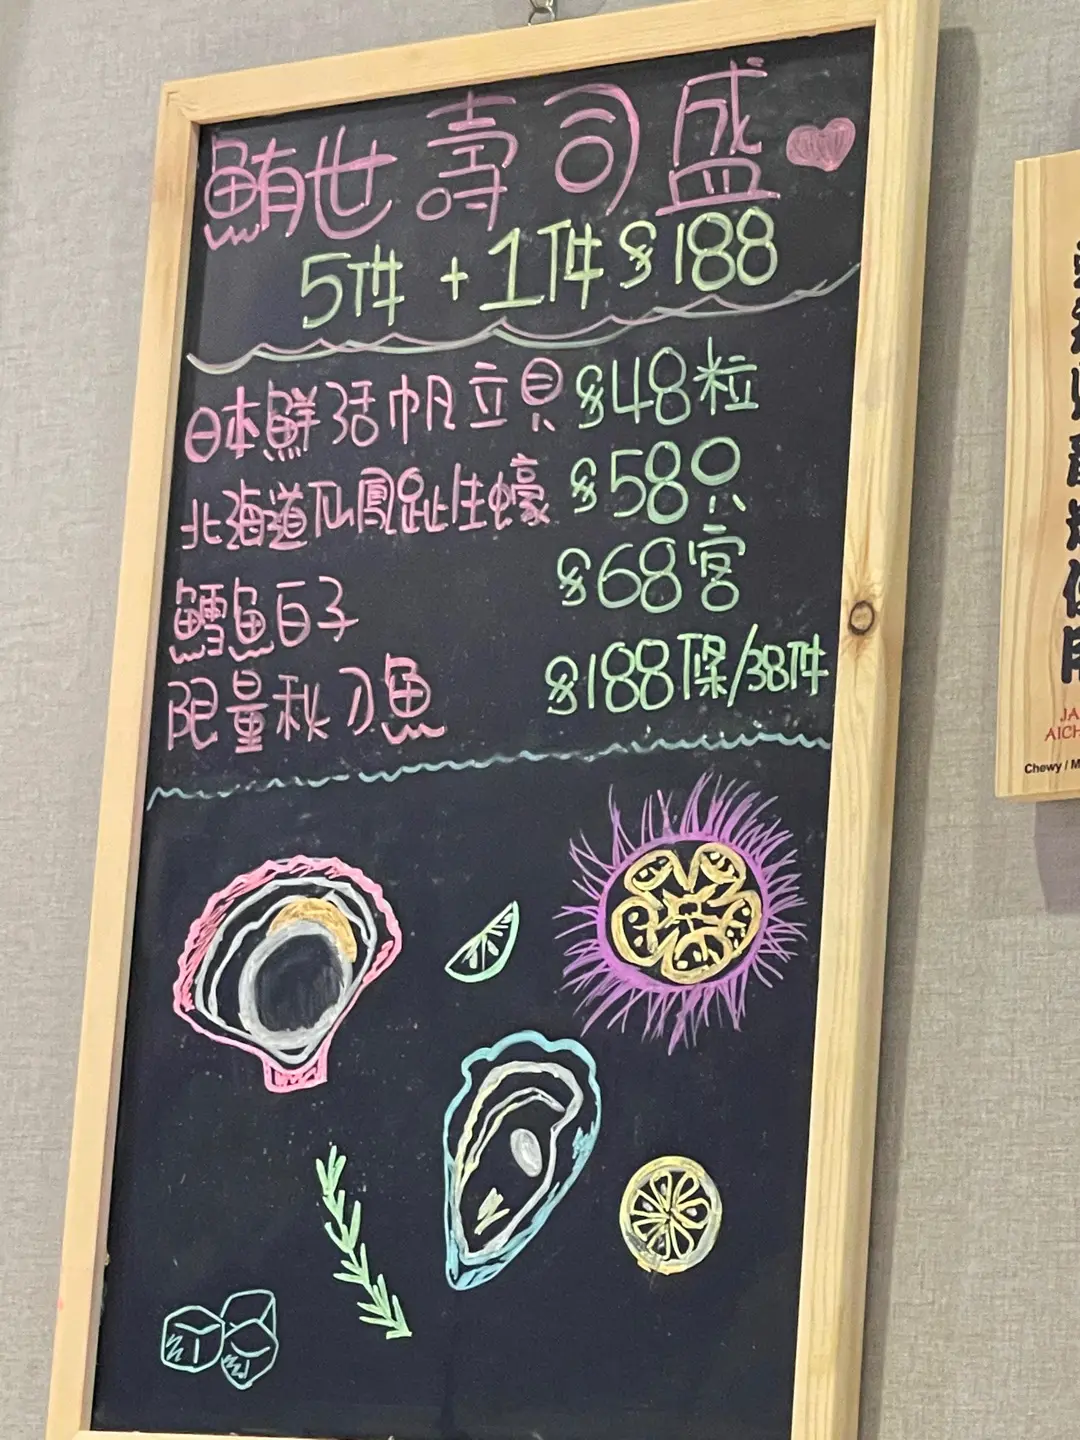 鮪世壽司盛
5件 + 1件 $188
日本鮮活帆立貝 $48粒
北海道仙鳳趾生蠔 $58只
鱈魚白子 $68客
限量秋刀魚 $188條/38件
JA
AICH
Chewy / M